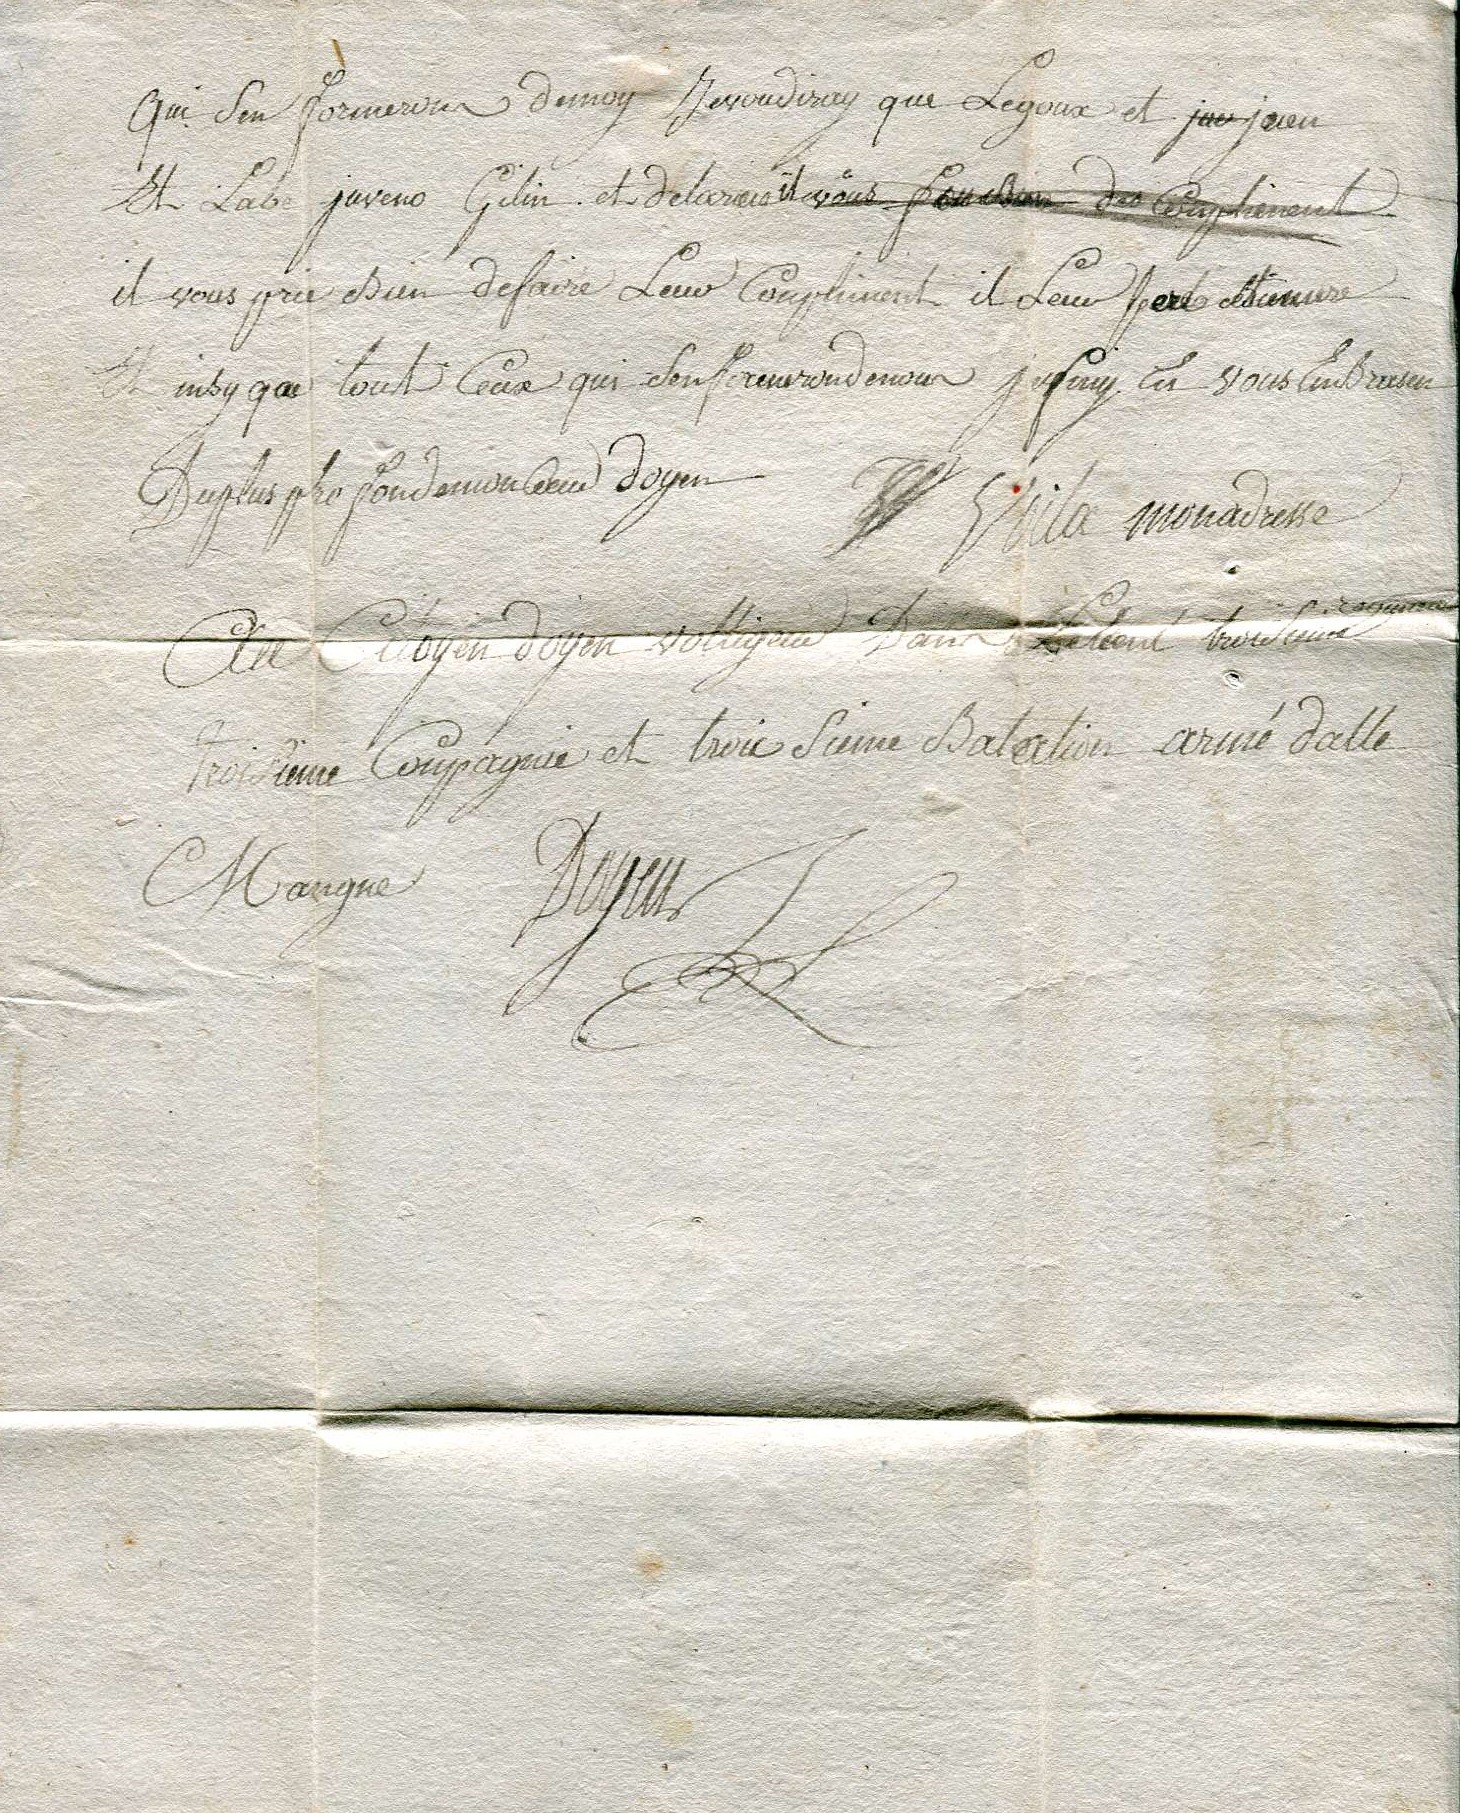 Qui Sen formeron demoy Jevoudiray que Legoux et jau jaen
Et Labé juveno Gilin et delarue il vous fon bien des Compliment
il vous prie Bien defaire Leur Compliment il Leur
Et insy que tout Ceux qui Senformerondenous jefiny En vous EmBrasen
Duplus profondemonCoeur doyen Voila monadresse
Citoyen doyen voltigeur Dans troisieme regiment
troisieme Compagnie et troi Sieme Batalion armé dalle
Mangne Doyen